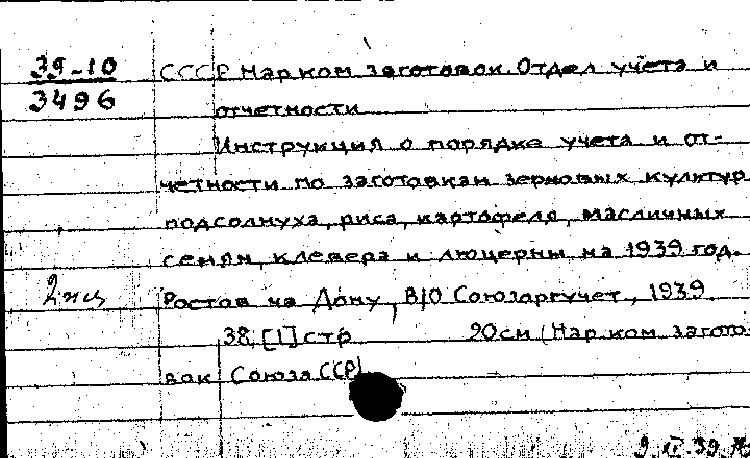 39-10
3496
СССР Нарком заготовок. Отдел учета и
отчетности
Инструкция о порядке учета и от-
четности по заготовкам зерновых культур
подсолнуха, риса, картофеля, масличных
семян, клевера и люцерны на 1939 год.
2 экз
Ростов на Дону, В/О Союзоргучет, 1939.
38, [1] стр 20см (Нар.ком. загото
вок Союза ССР)
9.IV.39